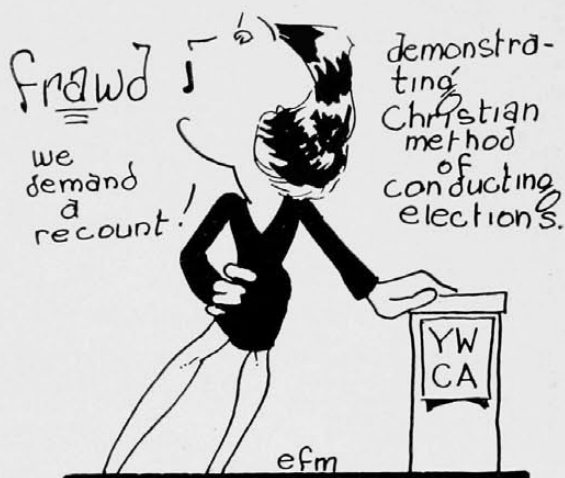 frawd
we
demand
a
recount!
demonstra-
ting
Christian
method
of
conducting
elections.
YW
CA
efm